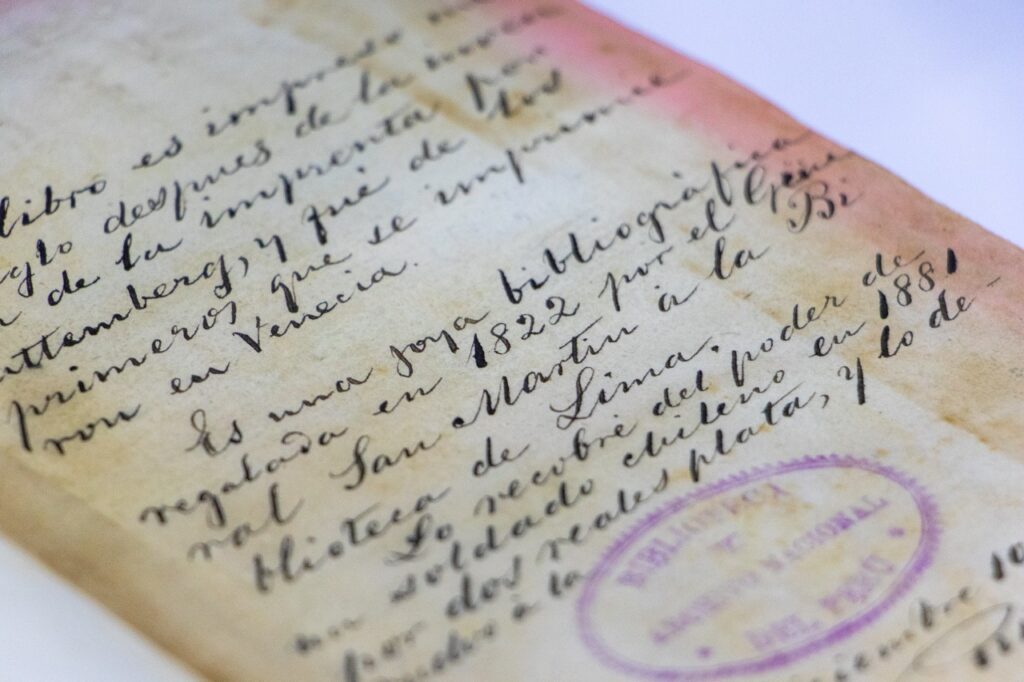 libro es impreso
glo despues de la
de la imprenta por
uttemberg, y fué de los
primeros que se imprimie
ron en Venecia.
Es una joya bibliográfica
regalada en 1822 por el Gene
ral San Martin á la Bi
blioteca de Lima.
Lo recobré del poder de
un soldado chileno en 1881
por dos reales plata, y lo de-
á la
BIBLIOTECA
Y
ARCHIVO NACIONAL
DEL PERÚ